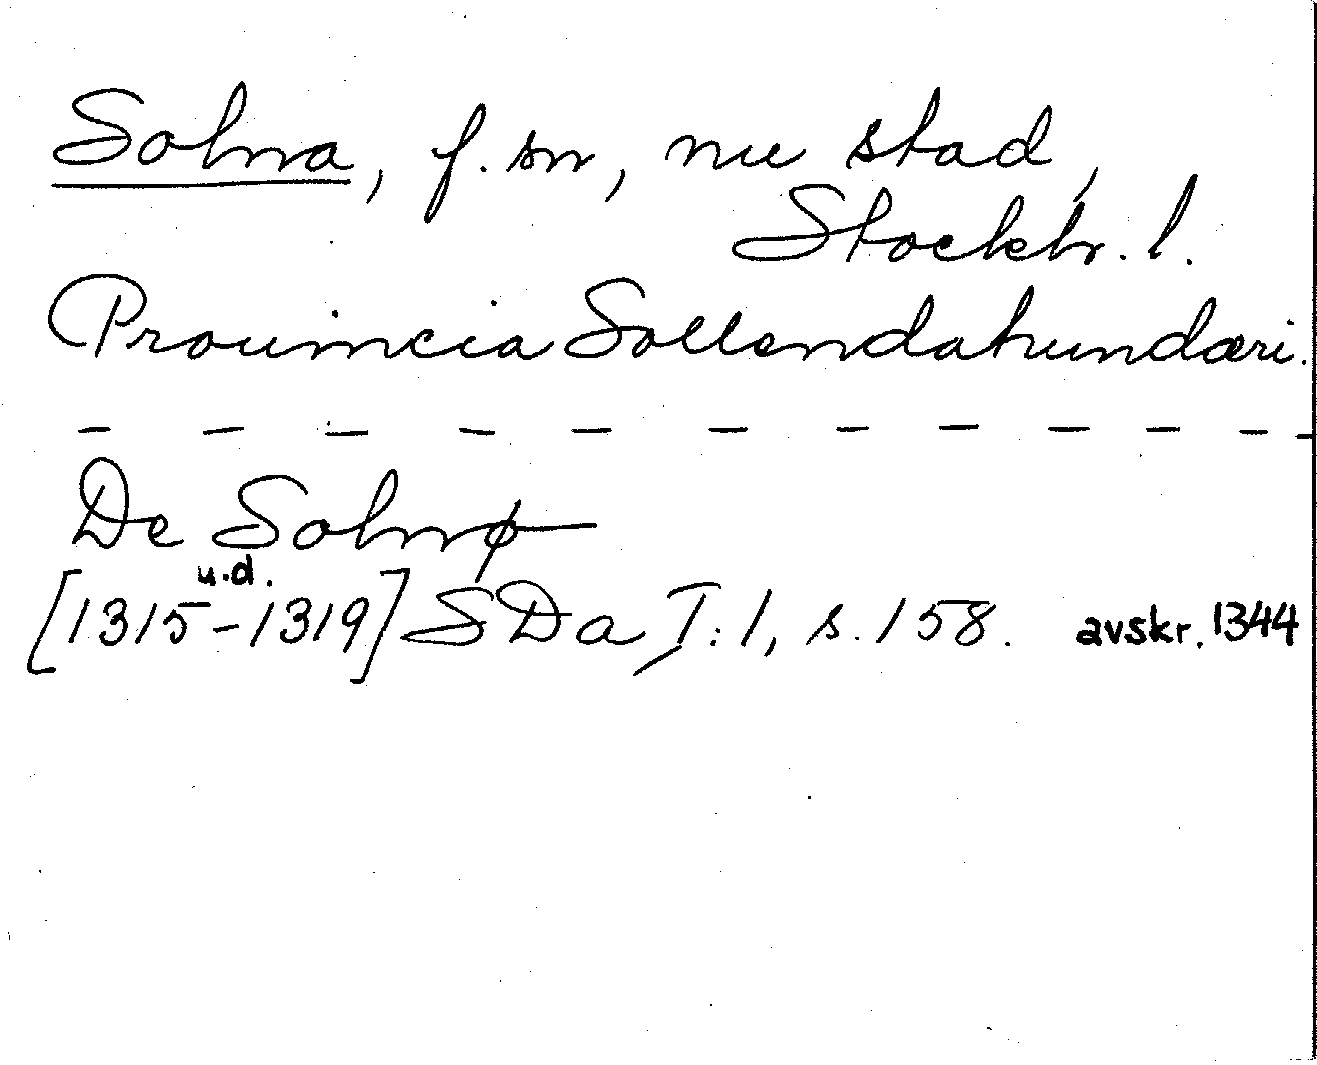 Solna, f. sn, nu stad,
Stockh. l.
Prouincia Sollendahundæri.
- - - - - - - - - - - -
De Solnø
u.d.
[1315-1319] SDa I:1, s. 158. avskr. 1344